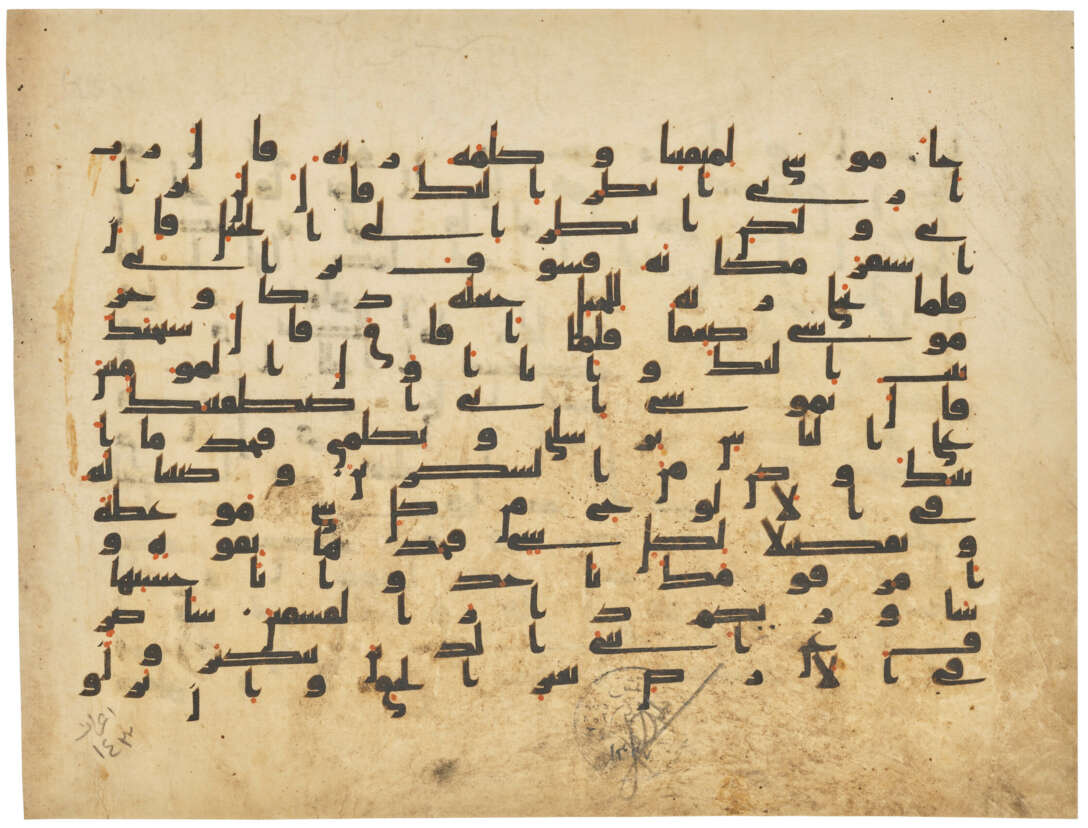 جا موسى لميقتنا وكلمه ربه قال رب
ارنى انظر اليك قال لن ترا
نى ولكن انظر الى الجبل فان
استقر مكانه فسوف ترانى
فلما تجلى ربه للجبل جعله دكا وخر
موسى صعقا فلما افاق قال سبحنك
تبت اليك وانا اول المومنين
قال يموسى انى اصطفيتك
على الناس برسلتى وبكلمى فخذ ما ا
تيتك وكن من الشكرين وكتبنا له
فى الالواح من كل شى موعظة
وتفصيلا لكل شى فخذها بقوة و
امر قومك ياخذوا باحسنها
ساوريكم دار الفسقين ساصر
ف عن ايتى الذين يتكبرون
فى الارض بغير الحق وان يروا
اعراف
١٤٣